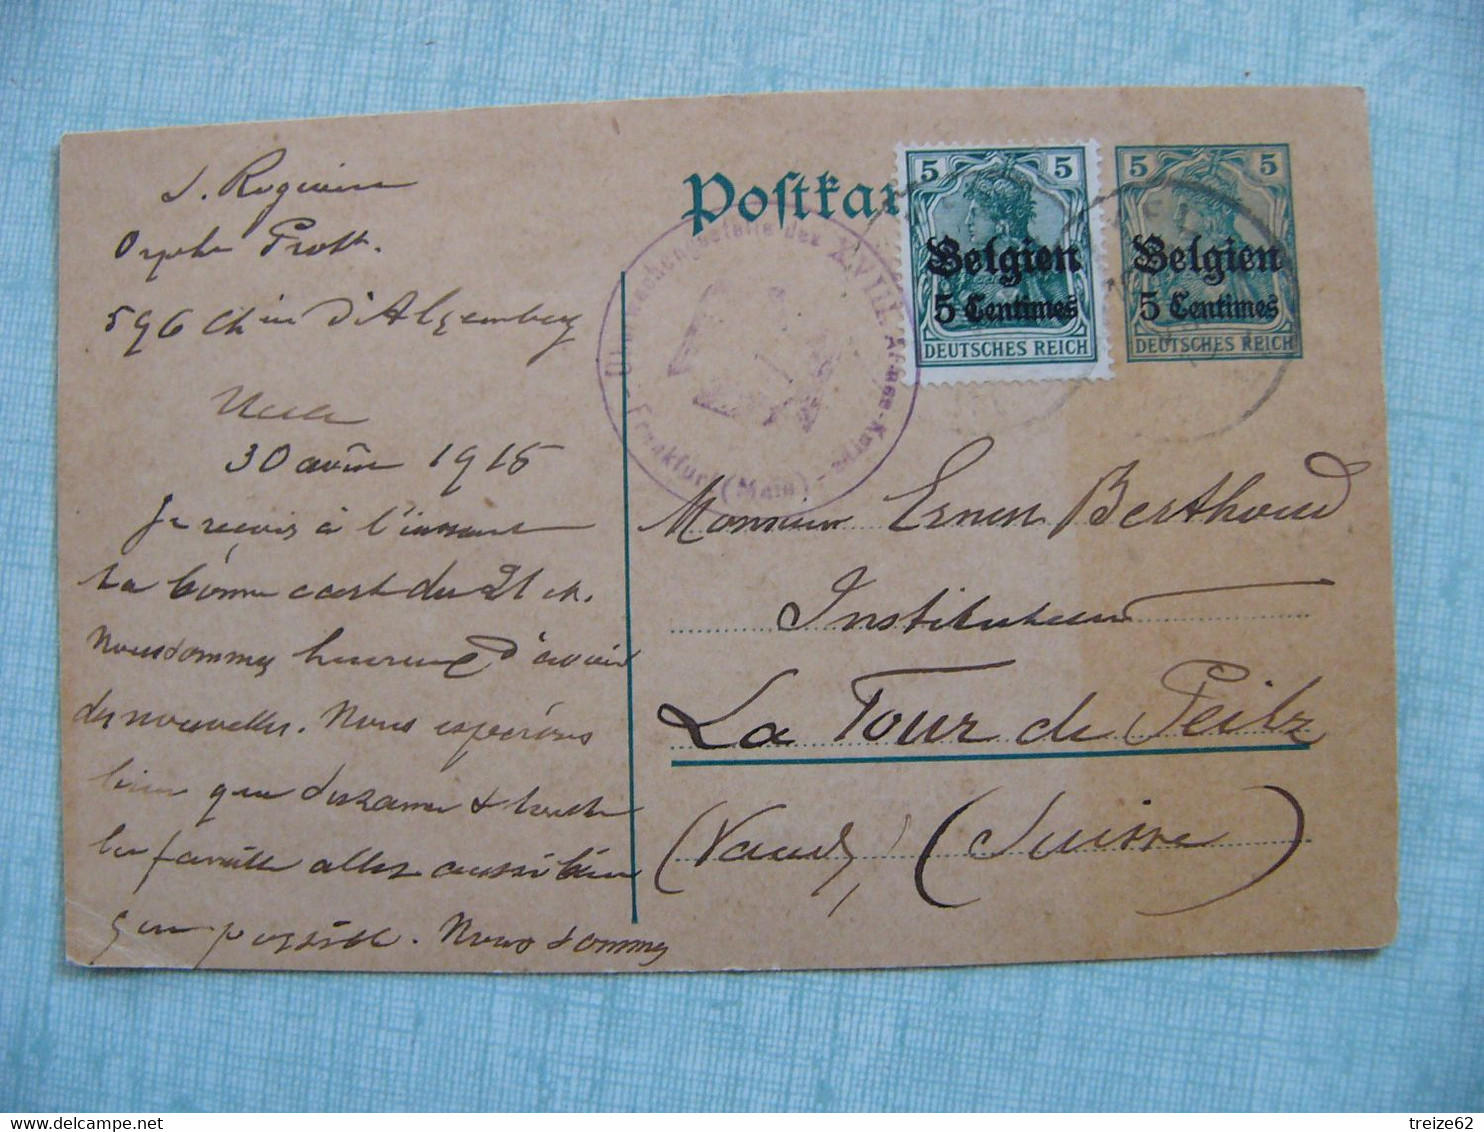 Orphe Prott.
596 Ch d'Alsemberg
Uccle
30 août 1915
Je reçois à l'instant
ta bonne carte du 21 ct.
Nous sommes heureux d'avoir
des nouvelles. Nous espérons
bien que Suzanne & toute
la famille allez aussi bien
que possible. Nous sommes
Postkar
5 5
Belgien
5 Centimes
DEUTSCHES REICH
5 5
Belgien
5 Centimes
DEUTSCHES REICH
Überwachungsstelle des XVIII. Armee-Korps
Frankfurt (Main)
Monsieur Ernest Berthoud
Instituteur
La Tour de Peilz
(Vaud) (Suisse)
delcampe.net
treize62